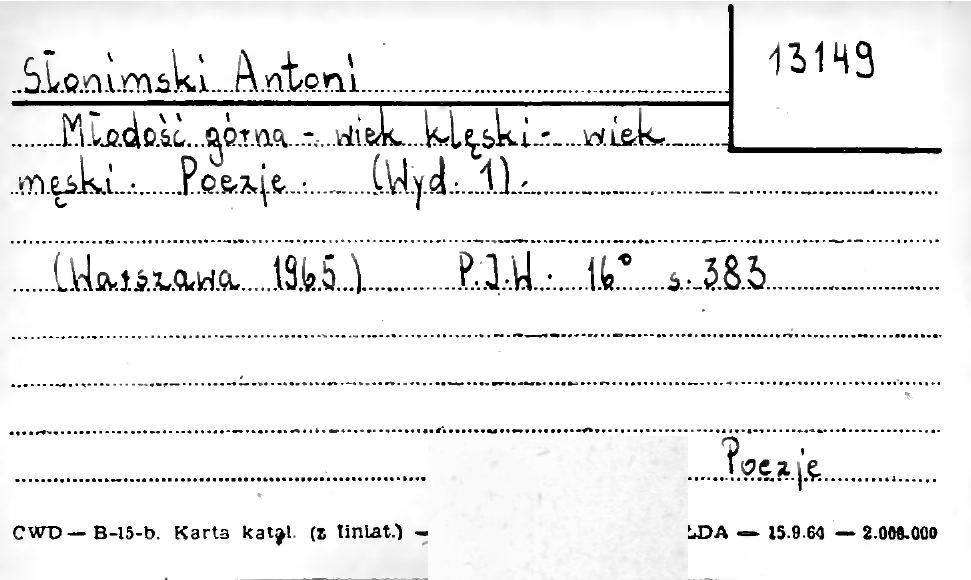 Słonimski Antoni
13149
Młodość górna - wiek klęski - wiek
męski. Poezje. (Wyd. 1).
(Warszawa 1965) P.I.W. 16° s. 383
Poezje
CWD — B-15-b. Karta katal. (z liniat.) — LDA — 15.9.64 — 2.000.000